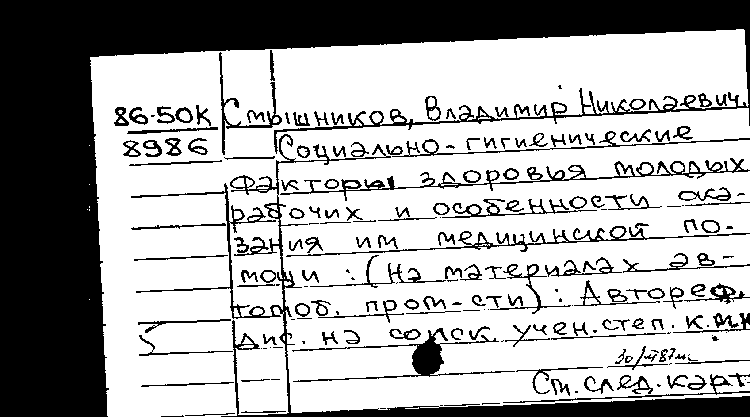 86-50К Смышников, Владимир Николаевич.
8986 Социально-гигиенические
факторы здоровья молодых
рабочих и особенности ока-
зания им медицинской по-
мощи : (На материалах ав-
томоб. пром-сти) : Автореф.
дис. на соиск. учен. степ. к.м.н
См. след. карт